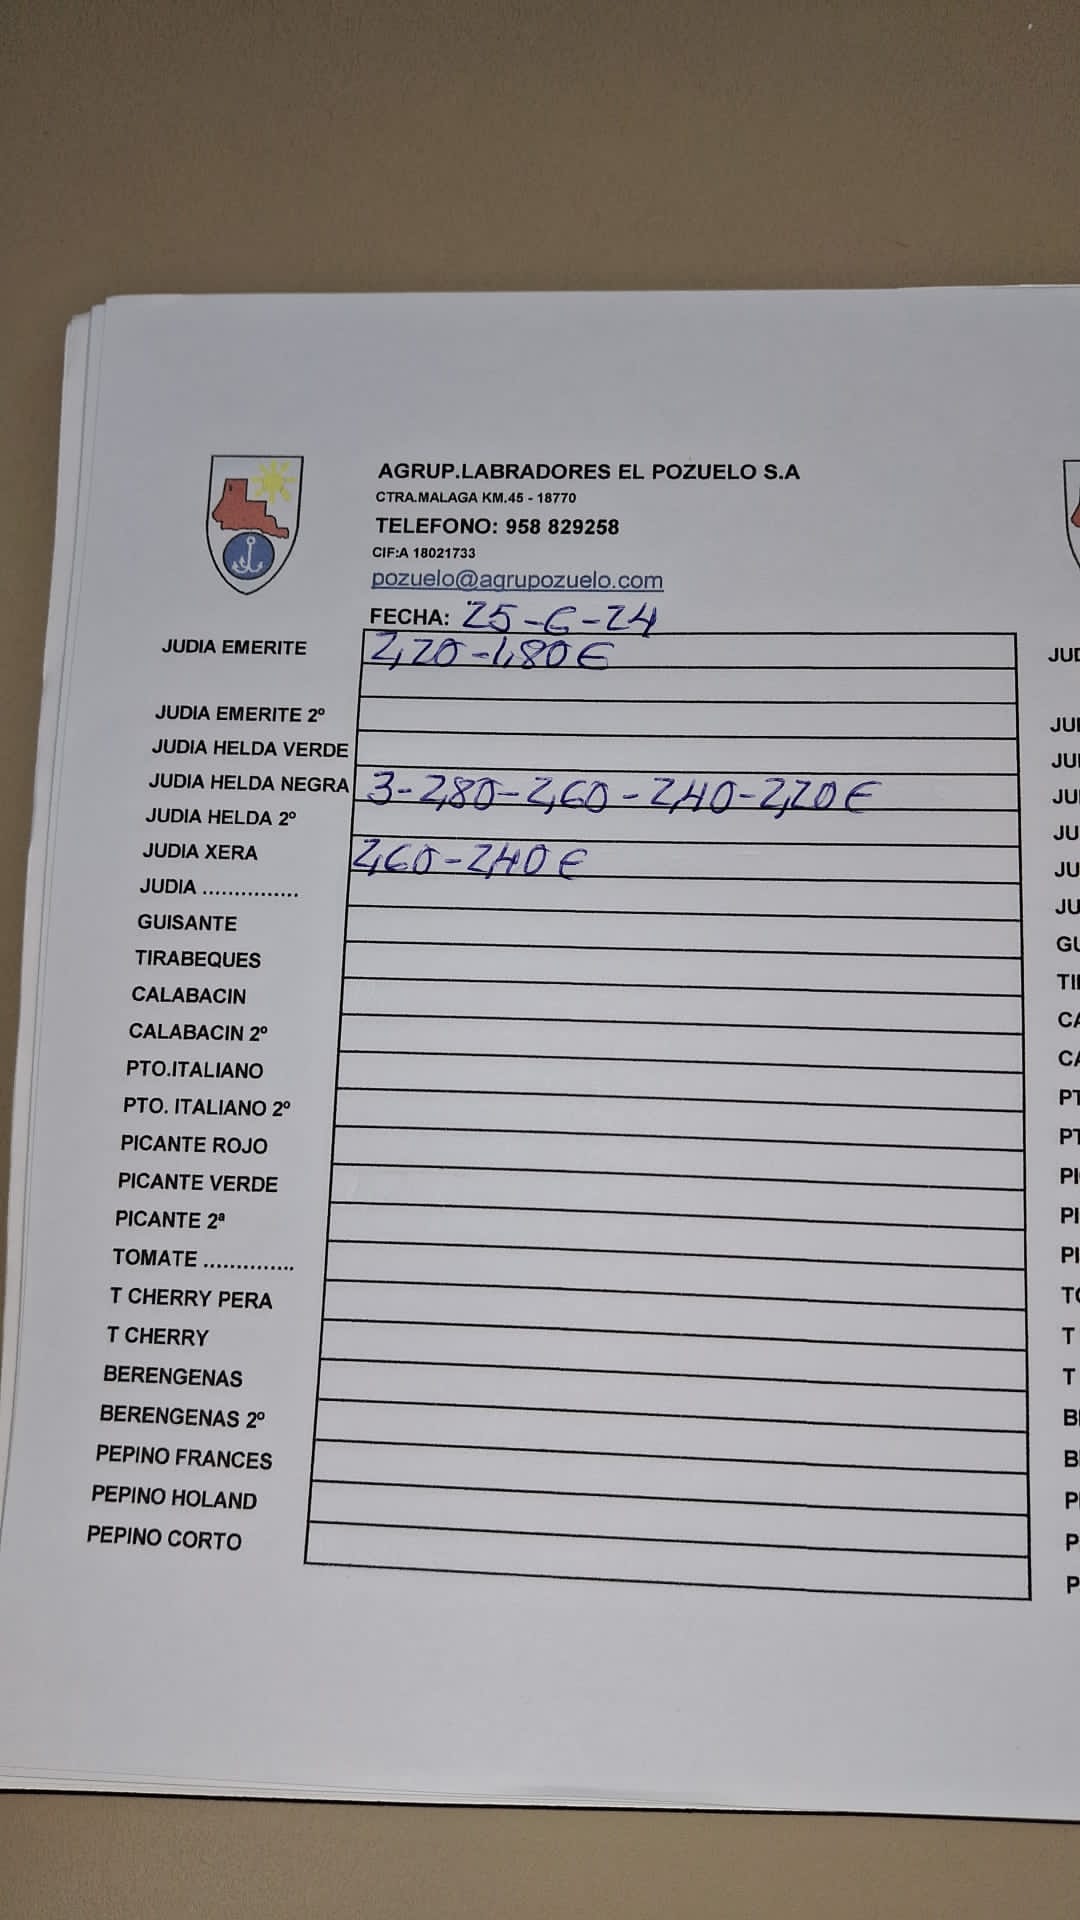 AGRUP.LABRADORES EL POZUELO S.A
CTRA.MALAGA KM.45 - 18770
TELEFONO: 958 829258
CIF:A 18021733
pozuelo@agrupozuelo.com
FECHA: 25-6-24
JUDIA EMERITE 2,20-1,80€
JUDIA EMERITE 2º
JUDIA HELDA VERDE
JUDIA HELDA NEGRA 3-2,80-2,60-2,40-2,20€
JUDIA HELDA 2º
JUDIA XERA 2,60-2,40€
JUDIA ...............
GUISANTE
TIRABEQUES
CALABACIN
CALABACIN 2º
PTO.ITALIANO
PTO. ITALIANO 2º
PICANTE ROJO
PICANTE VERDE
PICANTE 2ª
TOMATE ..............
T CHERRY PERA
T CHERRY
BERENGENAS
BERENGENAS 2º
PEPINO FRANCES
PEPINO HOLAND
PEPINO CORTO